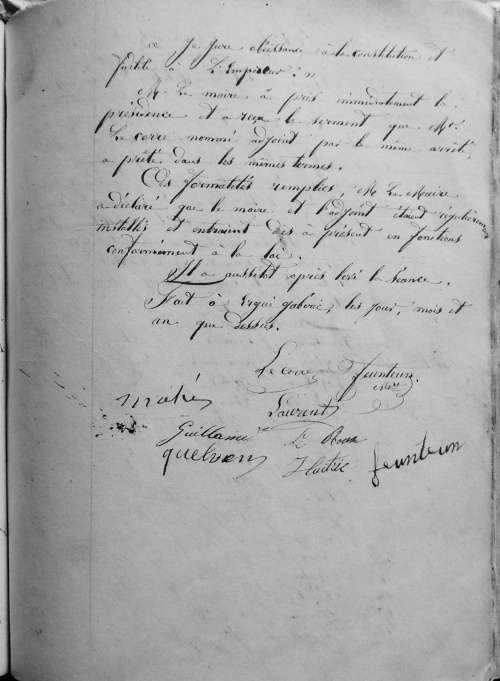 « Je jure obéissance à la constitution et
fidélité à L'Empereur. »
M. Le maire a pris immédiatement la
présidence et a reçu le serment que Mr.
Le Corre nommé adjoint par le même arrêté,
a prêté dans les mêmes termes.
Ces formalités remplies, M. Le Maire
a déclaré que le maire et l'adjoint étaient régulièrement
installés et entraient dès à présent en fonctions
conformément à la loi.
Il a aussitôt après levé la séance.
Fait à Ergué gabéric, les jour, mois et
an que dessus.
Le Corre Feunteun
Mahé
Laurent
Guillaume Le Roux
quelven feunteun